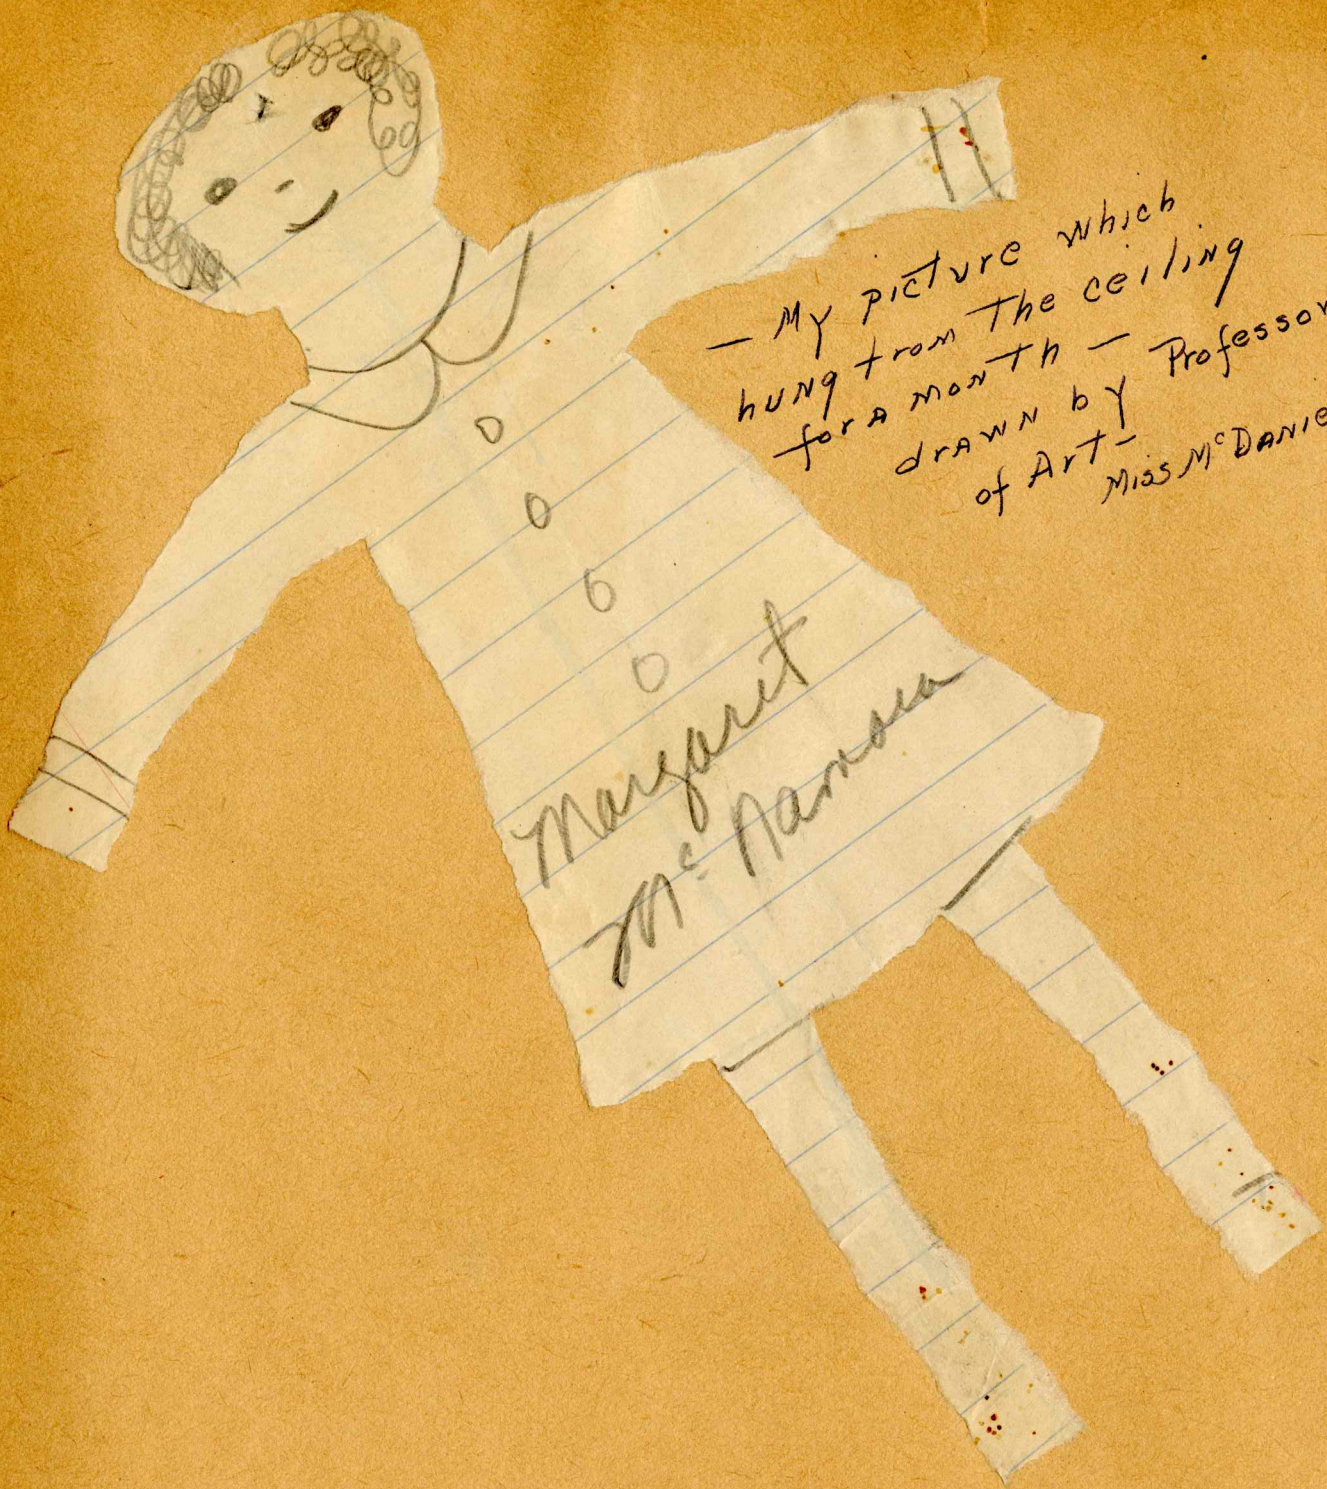 — My picture which
hung from the ceiling
for a month —
drawn by Professor
of Art —
Miss McDanie
Margaret
Mc Namara